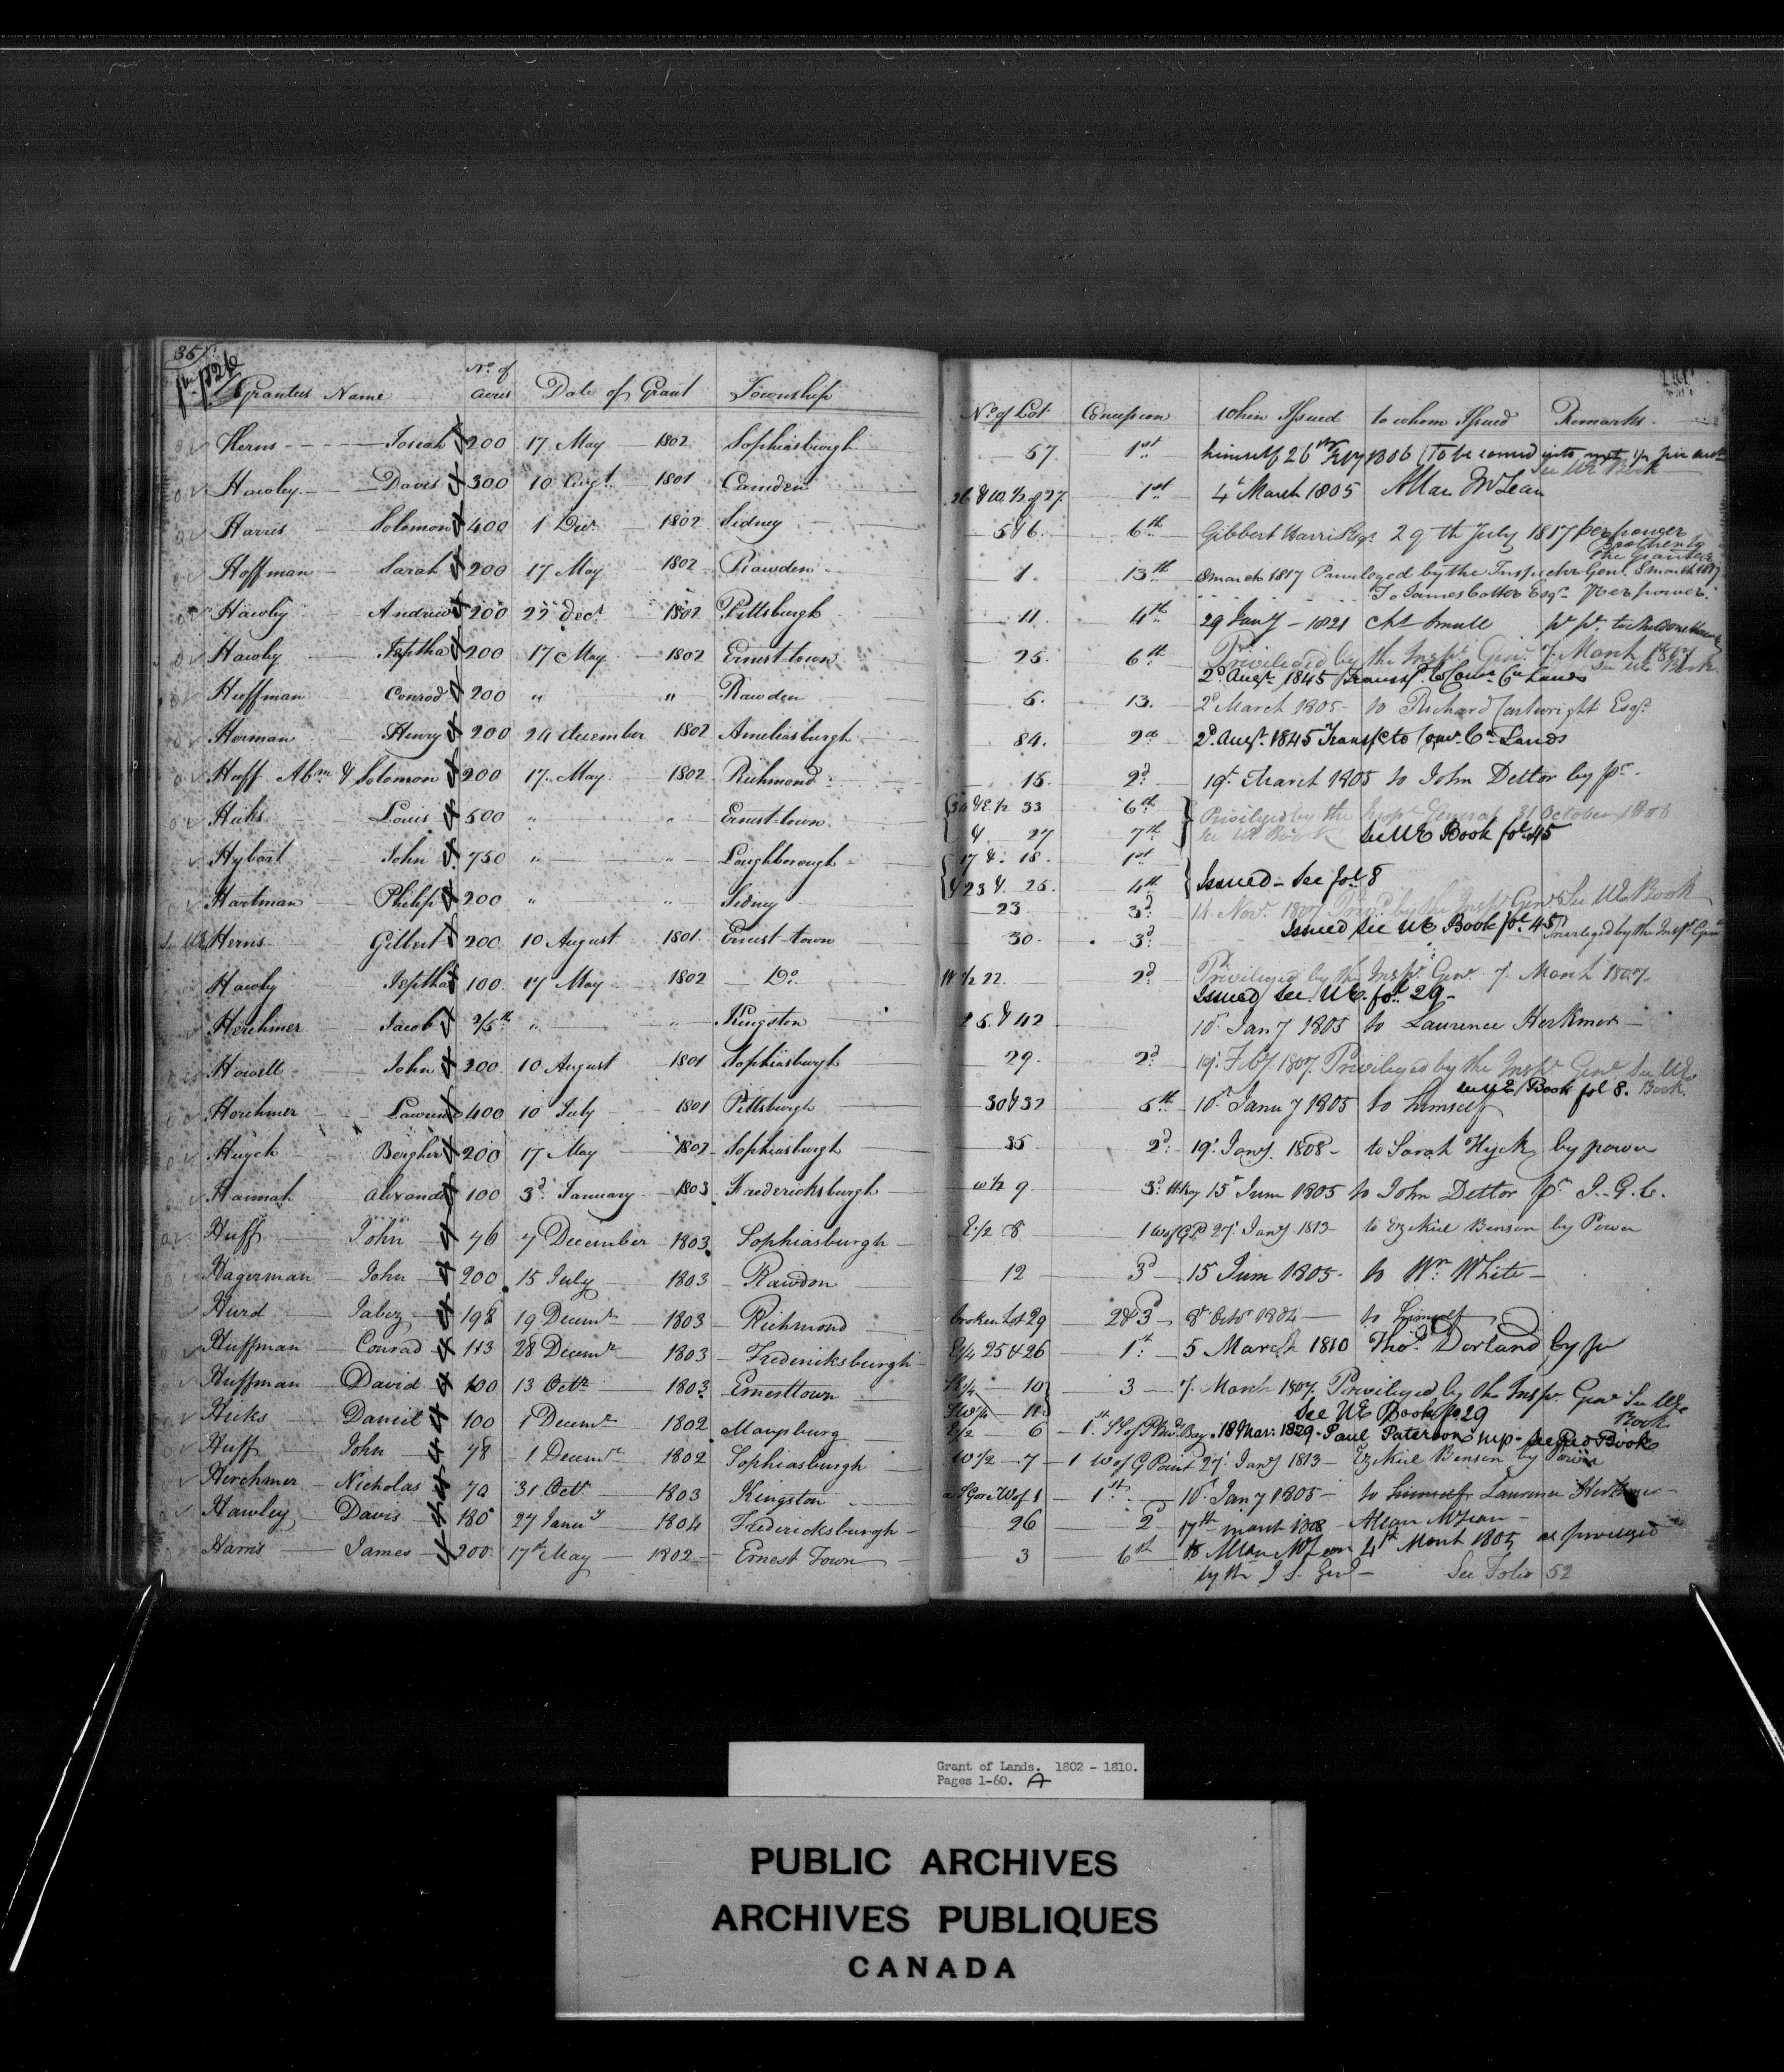 357
Grantees Name No. of Acres Date of Grant Township No. of Lot Concession When Issued to whom Issued Remarks
Herns Josiah 200 17 May 1802 Sophiasburgh 57 1st himself 26 1806
See UE Book
Hawley Davis 300 10 Augt. 1801 Camden 26 & W. ½ of 27 1st 4t March 1805 Allan McLean
Harris Solomon 400 1 Decr. 1802 Sidney 5 & 6 6th Gilbert Harris Esqr. 29th July 1817 per power
Hoffman Sarah 200 17 May 1802 Rawden 1. 13th 8 March 1817 Privileged by the Inspector Genl. 8 March 1817
To James Cotter Esqr. per power
Hawley Andrew 200 22 Decr. 1802 Pittsburgh 11. 4th 29 Jany 1821
Hawley Jeptha 200 17 May 1802 Ernest town 25. 6th Privileged by the Inspr. Genr. 7. March 1807
See UE Book
Huffman Conrod 200 " " Rawden 5. 13. 2d March 1805 to Richard Cartwright Esqr.
2d. Augt. 1845 Transfd. to Comr. Cn Lands
Herman Henry 200 24 december 1802 Ameliasburgh 84. 2d 2d. Augt. 1845 Transfd to Comr. Cn Lands
Huff Abm. & Solomon 200 17. May 1802 Richmond 15. 2d 19t. March 1805 to John Dettor by pr.
Hicks Louis 500 " " Ernest town 30 & E. ½ 33 6th Privileged by the Inspr General 31 October 1808
& 27 7th See UE Book See UE Book fol. 45
Hybart John 750 " " Loughborough 17 & 18. 1st
& 23 & 25. 4th Issued - See fol. 8
Hartman Philip 200 " " Sidney 23 3d 14. Novr. 1807 Privd. by the Inspr Genr. See UE Book
See UE Herns Gilbert 200 10 August 1801 Ernest town 30. 3d. Issued See UE Book fol. 45 Privileged by the Inspr. Genr
Hawley Jeptha 100 17 May 1802 Do. W ½ 22 2d Privileged by the Inspr. Genr. 7. March 1807
Issued See UE. fol. 29
Herchmer Jacob 2/5th " " Kingston 25. & 42 10t. Jany 1805 to Laurence Herkmer
Howell John 200 10 August 1801 Sophiasburgh 29. 2d 19t. Feby 1807. Privileged by the Inspr. Genr. See UE Book
See UE Book fol 8.
Herchmer Lawrence 400 10 July 1801 Pittsburgh 30 & 32 5th 10t. Janu y 1805 to himself
Huyck Bergher 200 17 May 1802 Sophiasburgh 35 2d 19t. Jany. 1808 to Sarah Hyck by power
Hannah Alexander 100 3d. January 1803 Fredericksburgh w ½ 9 3d. 15t June 1805 to John Dettor pr. I. G. C.
Huff John 76 7 December 1803 Sophiasburgh E. ½ 8 1 W of GP 27t. Jany 1813 to Ezekiel Benson by Power
Hagerman John 200 15 July 1803 Rawdon 12 3d 15t June 1805 to Wm. White
Hurd Jabez 198 19 Decemr 1803 Richmond broken Lot 29 2 & 3d 8t Octor 1804 to himself
Huffman Conrad 113 28 Decemr 1803 Fredericksburgh E ¼ 25 & 26 1st. 5 March 1810 Thos. Dorland by pr
Huffman David 100 13 Octr 1803 Ernesttown 10 3 7. March 1807. Privileged by the Inspr. Genr See UE Book
See UE Book fo. 29
Hicks Daniel 100 1 Decemr 1802 Marysburg E½ 6 18 Mar: 1829 Paul Paterson
Huff John 78 1 Decemr 1802 Sophiasburgh W ½ 7 1 W of G Point 27t. Jany 1813 Ezekiel Benson by Power
Herchmer Nicholas 70 31 Octr 1803 Kingston 1st 10t. Jany 1805 to himself Laurence Herkmer
Hawley Davis 185 27 Janu y 1804 Fredericksburgh 26 2d 17th March 1808 Allan McLean
Harris James 200 17th May 1802 Ernest Town 3 6th to Allan McLean 4th March 1805 as privileged
by the I. S. Genl See Folio 52
Grant of Lands. 1802 - 1810.
Pages 1-60. A
PUBLIC ARCHIVES
ARCHIVES PUBLIQUES
CANADA